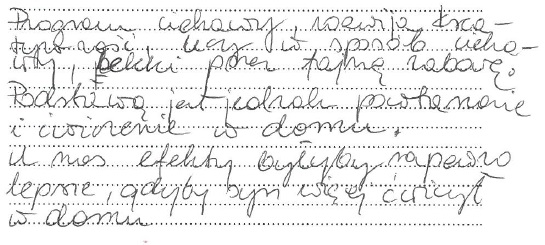 Program ciekawy, rozwija krea-
tywność, uczy w sposób cieka-
wy, lekki przez fajną zabawę.
Podstawą jest jednak powtarzanie
i ćwiczenie w domu.
U nas efekty byłyby napewno
lepsze, gdyby syn więcej ćwiczył
w domu